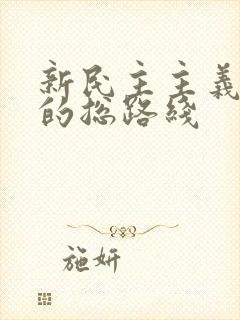 新民主主義
的总路线
施妍